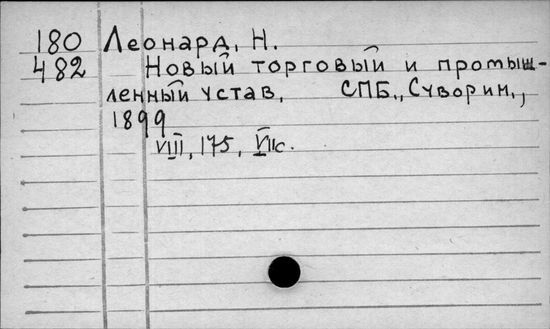 180 Леонард, Н.
482 Новый торговый и промыш-
ленный устав, СПБ., Суворин,,
1899
VIII, 175, VIIс.